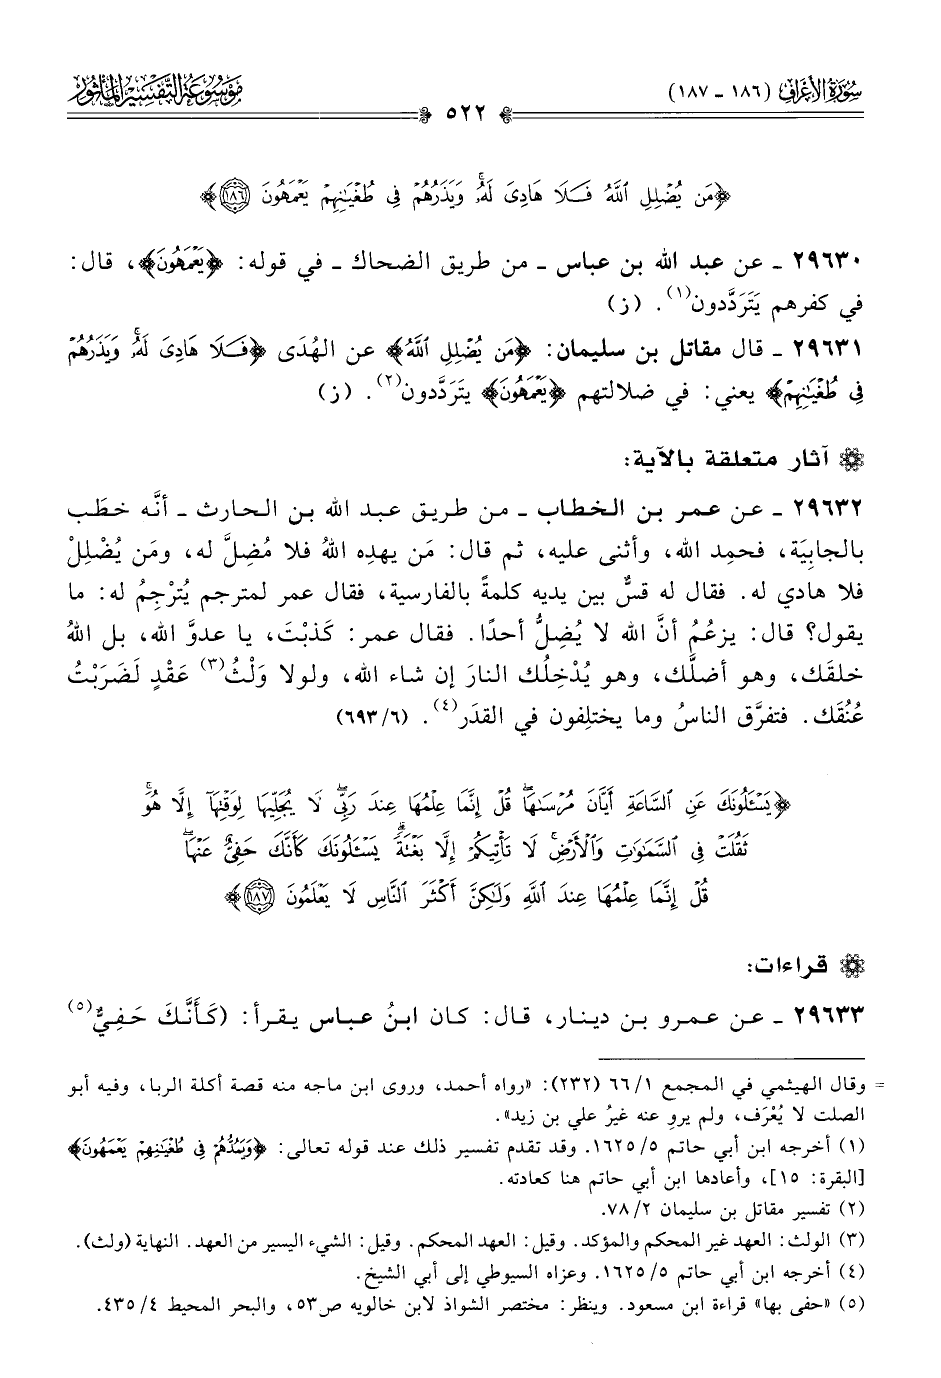 سورة الأعراف (١٨٦ - ١٨٧)
٥٢٢
موسوعة التفسير المأثور
﴿مَن يُضْلِلِ ٱللَّهُ فَلَا هَادِىَ لَهُۥۚ وَيَذَرُهُمْ فِى طُغْيَٰنِهِمْ يَعْمَهُونَ ١٨٦﴾
٢٩٦٣٠ ـ عن عبد الله بن عباس ـ من طريق الضحاك ـ في قوله: ﴿يَعْمَهُونَ﴾، قال:
في كفرهم يَتَرَدَّدون(١). (ز)
٢٩٦٣١ ـ قال مقاتل بن سليمان: ﴿مَن يُضْلِلِ ٱللَّهُ﴾ عن الهُدَى ﴿فَلَا هَادِىَ لَهُۥۚ وَيَذَرُهُمْ
فِى طُغْيَٰنِهِمْ﴾ يعني: في ضلالتهم ﴿يَعْمَهُونَ﴾ يتردَّدون(٢). (ز)
آثار متعلقة بالآية:
٢٩٦٣٢ ـ عن عمر بن الخطاب ـ من طريق عبد الله بن الحارث ـ أنَّه خطَب
بالجابِيَة، فحمِد الله، وأثنى عليه، ثم قال: مَن يهدِه اللهُ فلا مُضِلَّ له، ومَن يُضْلِلْ
فلا هادي له. فقال له قسٌّ بين يديه كلمةً بالفارسية، فقال عمر لمترجم يُتَرْجِمُ له: ما
يقول؟ قال: يزعُمُ أنَّ الله لا يُضِلُّ أحدًا. فقال عمر: كَذبْتَ، يا عدوَّ الله، بل اللهُ
خلقَك، وهو أضلَّك، وهو يُدْخِلُك النارَ إن شاء الله، ولولا وَلْثُ(٣) عَقْدٍ لَضَرَبْتُ
عُنُقَك. فتفرَّق الناسُ وما يختلِفون في القدَر(٤). (٦/ ٦٩٣)
﴿يَسْـَٔلُونَكَ عَنِ ٱلسَّاعَةِ أَيَّانَ مُرْسَىٰهَاۖ قُلْ إِنَّمَا عِلْمُهَا عِندَ رَبِّىۖ لَا يُجَلِّيهَا لِوَقْتِهَآ إِلَّا هُوَۚ
ثَقُلَتْ فِى ٱلسَّمَٰوَٰتِ وَٱلْأَرْضِۚ لَا تَأْتِيكُمْ إِلَّا بَغْتَةًۗ يَسْـَٔلُونَكَ كَأَنَّكَ حَفِىٌّ عَنْهَاۖ
قُلْ إِنَّمَا عِلْمُهَا عِندَ ٱللَّهِ وَلَٰكِنَّ أَكْثَرَ ٱلنَّاسِ لَا يَعْلَمُونَ ١٨٧﴾
قراءات:
٢٩٦٣٣ ـ عن عمرو بن دينار، قال: كان ابنُ عباس يقرأ: (كَأَنَّكَ حَفِيٌّ(٥)
= وقال الهيثمي في المجمع ١/ ٦٦ (٢٣٢): «رواه أحمد، وروى ابن ماجه منه قصة أكلة الربا، وفيه أبو
الصلت لا يُعْرَف، ولم يروِ عنه غيرُ علي بن زيد».
(١) أخرجه ابن أبي حاتم ٥/ ١٦٢٥. وقد تقدم تفسير ذلك عند قوله تعالى: ﴿وَيَمُدُّهُمْ فِى طُغْيَٰنِهِمْ يَعْمَهُونَ﴾
[البقرة: ١٥]، وأعادها ابن أبي حاتم هنا كعادته.
(٢) تفسير مقاتل بن سليمان ٢/ ٧٨.
(٣) الولث: العهد غير المحكم والمؤكد. وقيل: العهد المحكم. وقيل: الشيء اليسير من العهد. النهاية (ولث).
(٤) أخرجه ابن أبي حاتم ٥/ ١٦٢٥. وعزاه السيوطي إلى أبي الشيخ.
(٥) «حفى بها» قراءة ابن مسعود. وينظر: مختصر الشواذ لابن خالويه ص٥٣، والبحر المحيط ٤/ ٤٣٥.